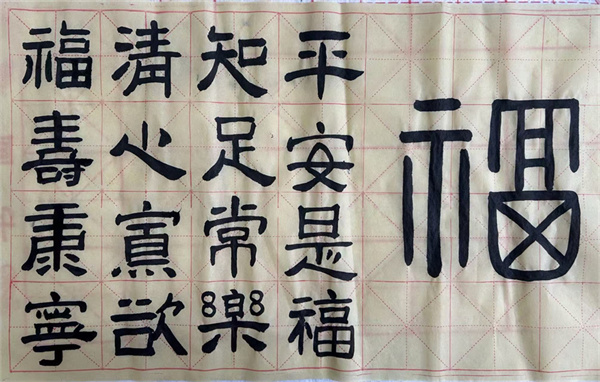 福
平安是福
知足常樂
清心寡欲
福壽康寧